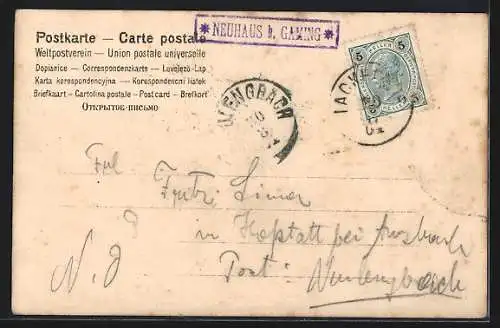 Postkarte – Carte postale
Weltpostverein – Union postale universelle
Dopisnice – Correspondenzkarte – Levelező-Lap
Karta korespondencyjna – Korespondenčni listek
Briefkaart – Cartolina postale – Postcard – Brefkort
Открытое письмо
* NEUHAUS b. GAMING *
5 5
HELLER HELLER
LENGBACH
Frl
Fritzi
in bei
Post: Neulengbach
N. Ö